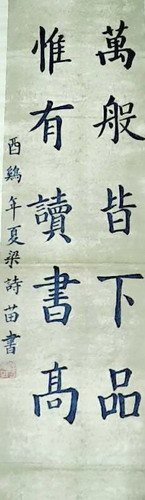 萬般皆下品
惟有讀書髙
酉鷄年夏梁詩苗書